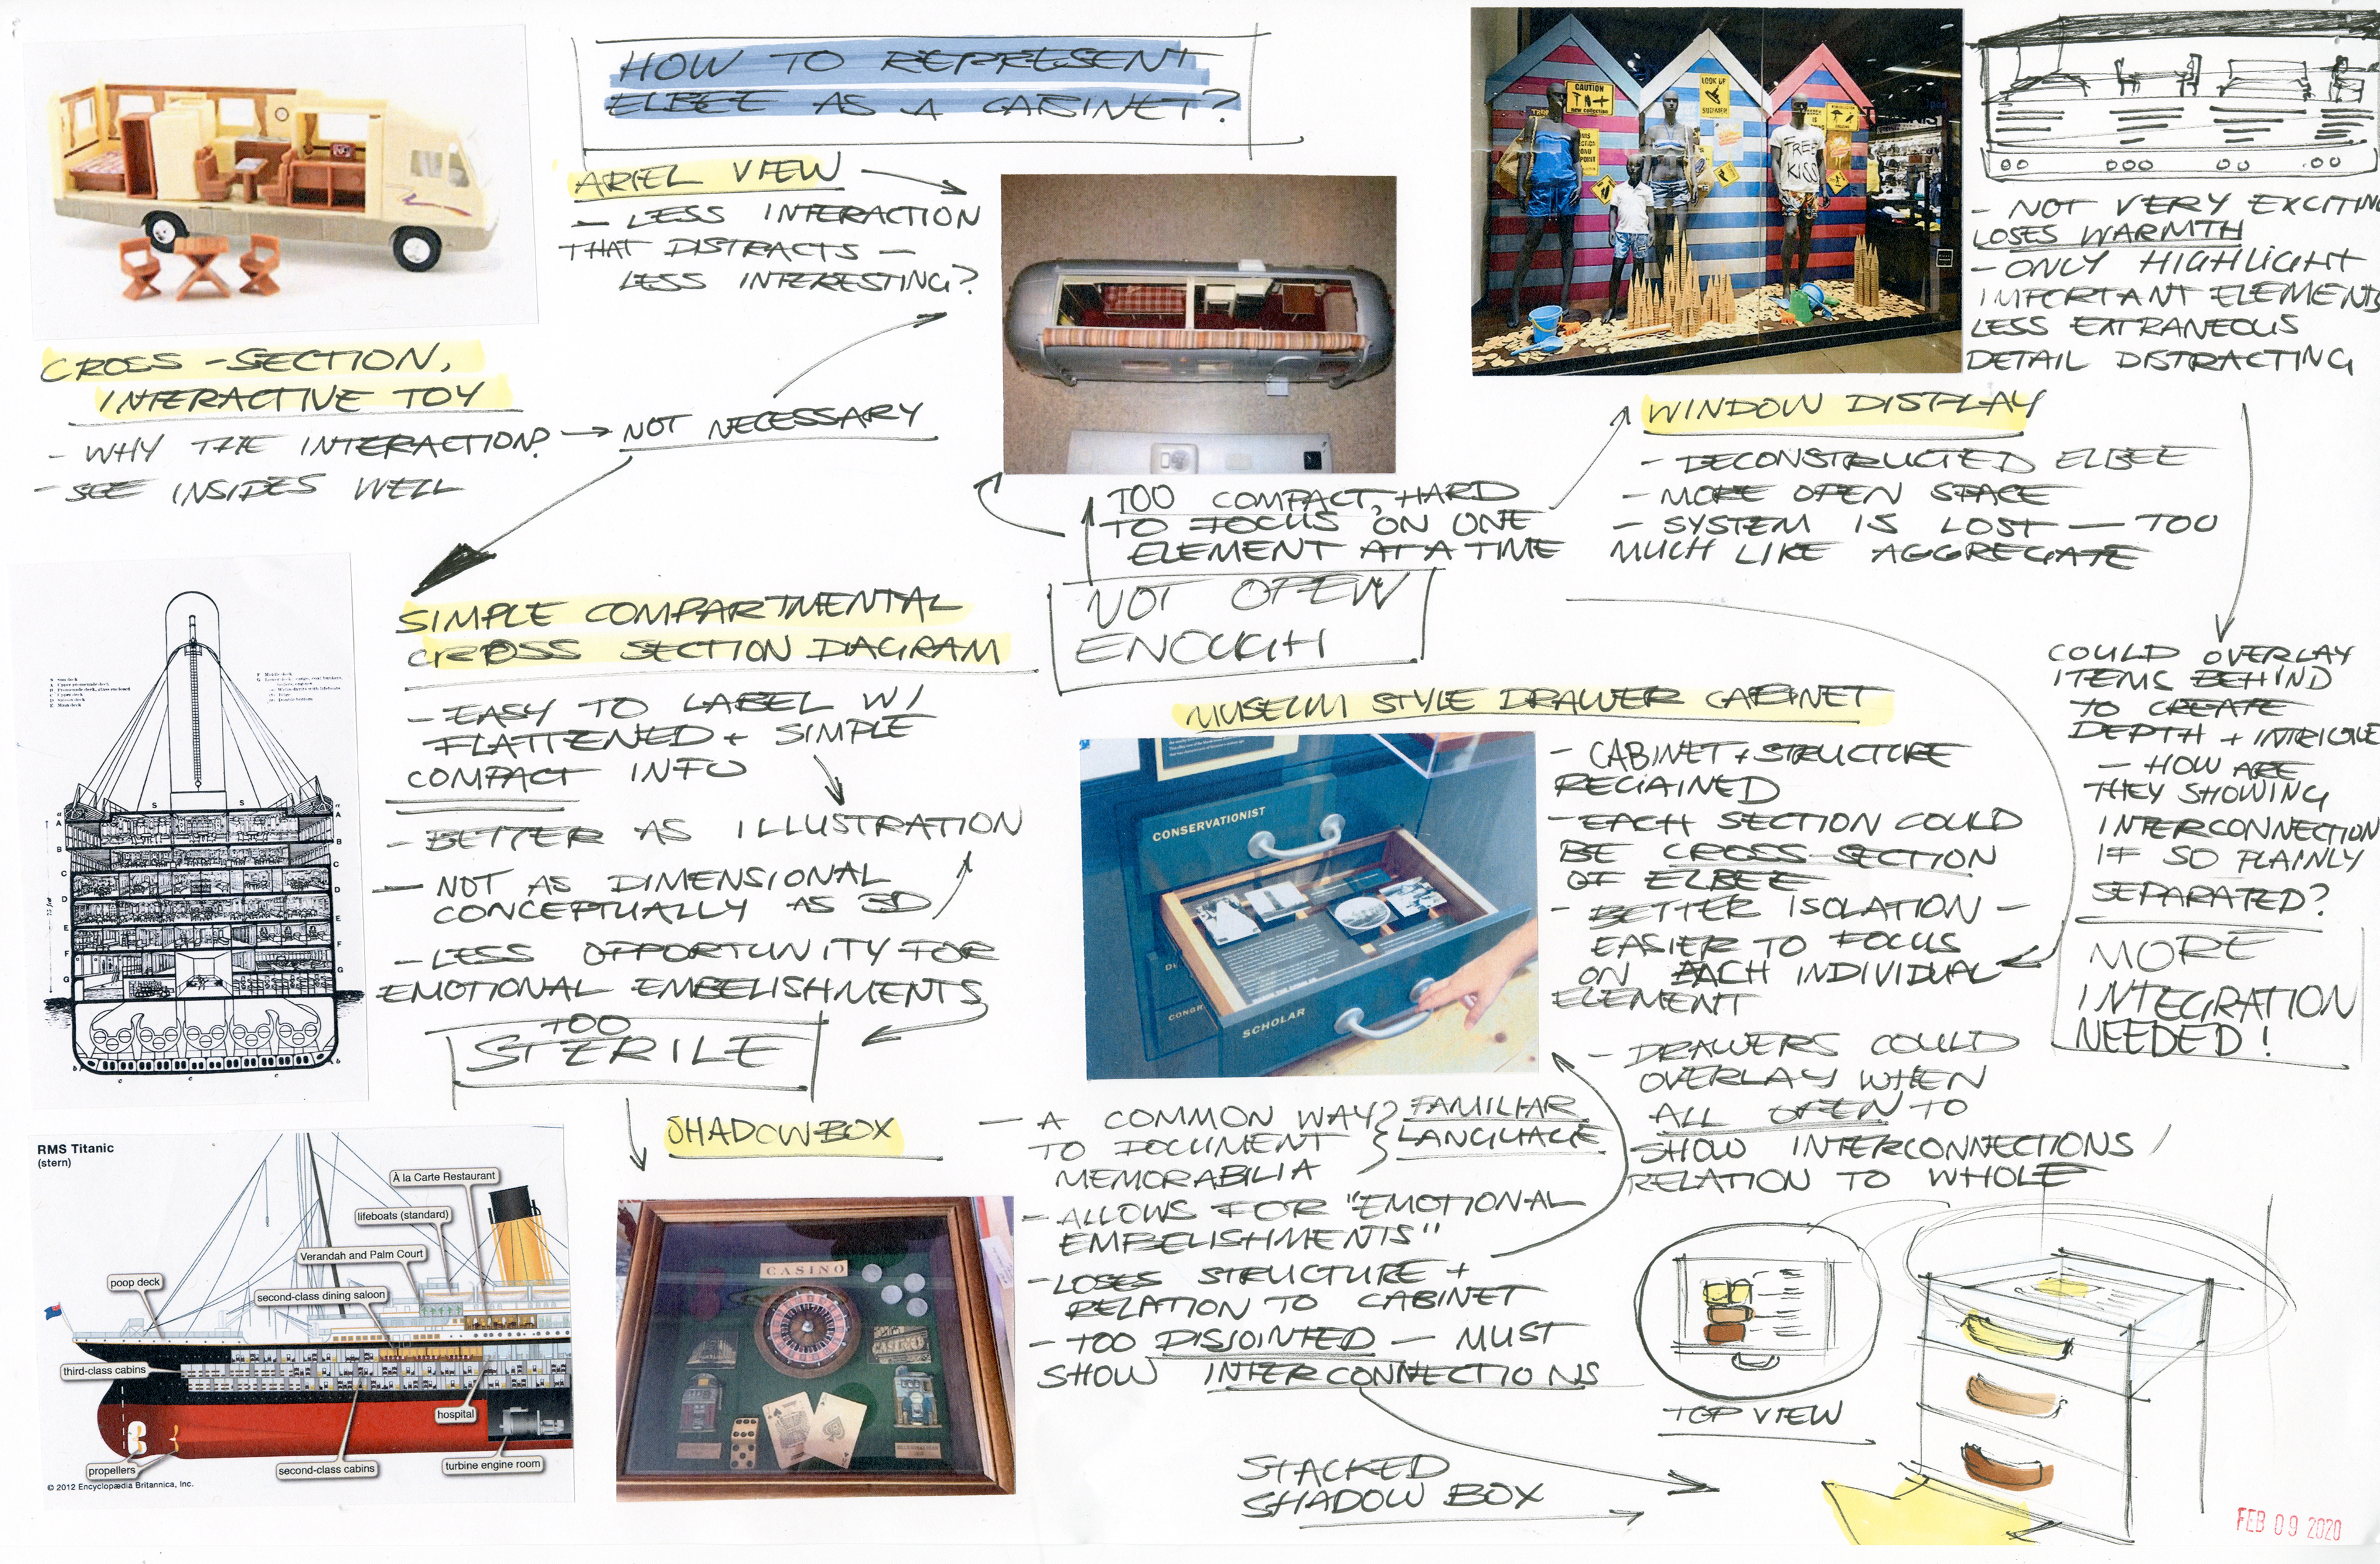 HOW TO REPRESENT
ELBEE AS A CABINET?
ARIEL VIEW
- LESS INTERACTION
THAT DISTRACTS -
LESS INTERESTING?
CROSS-SECTION,
INTERACTIVE TOY
- WHY THE INTERACTION? → NOT NECESSARY
- SEE INSIDES WELL
TOO COMPACT, HARD
TO FOCUS ON ONE
ELEMENT AT A TIME
NOT OPEN
ENOUGH
CAUTION
new collection
LOOK UP
TREE
KISS
WINDOW DISPLAY
- DECONSTRUCTED ELBEE
- MORE OPEN SPACE
- SYSTEM IS LOST - TOO
MUCH LIKE AGGREGATE
- NOT VERY EXCITING
LOSES WARMTH
- ONLY HIGHLIGHT
IMPORTANT ELEMENTS
LESS EXTRANEOUS
DETAIL DISTRACTING
COULD OVERLAY
ITEMS BEHIND
TO CREATE
DEPTH + INTRIGUE
- HOW ARE
THEY SHOWING
INTERCONNECTION
IF SO PLAINLY
SEPARATED?
MORE
INTEGRATION
NEEDED!
SIMPLE COMPARTMENTAL
CROSS SECTION DIAGRAM
- EASY TO LABEL W/
FLATTENED + SIMPLE
COMPACT INFO
- BETTER AS ILLUSTRATION
- NOT AS DIMENSIONAL
CONCEPTUALLY AS 3D
- LESS OPPORTUNITY FOR
EMOTIONAL EMBELISHMENTS
TOO
STERILE
MUSEUM STYLE DRAWER CABINET
CONSERVATIONIST
SCHOLAR
- CABINET + STRUCTURE
REGAINED
- EACH SECTION COULD
BE CROSS-SECTION
OF ELBEE
- BETTER ISOLATION -
EASIER TO FOCUS
ON EACH INDIVIDUAL
ELEMENT
- DRAWERS COULD
OVERLAY WHEN
ALL OPEN TO
SHOW INTERCONNECTIONS /
RELATION TO WHOLE
RMS Titanic
(stern)
À la Carte Restaurant
lifeboats (standard)
Verandah and Palm Court
poop deck
second-class dining saloon
third-class cabins
hospital
propellers
second-class cabins
turbine engine room
© 2012 Encyclopædia Britannica, Inc.
SHADOWBOX
CASINO
- A COMMON WAY
TO DOCUMENT
MEMORABILIA
FAMILIAR
LANGUAGE
- ALLOWS FOR "EMOTIONAL
EMBELISHMENTS"
- LOSES STRUCTURE +
RELATION TO CABINET
- TOO DISJOINTED - MUST
SHOW INTERCONNECTIONS
STACKED
SHADOW BOX
TOP VIEW
FEB 09 2020